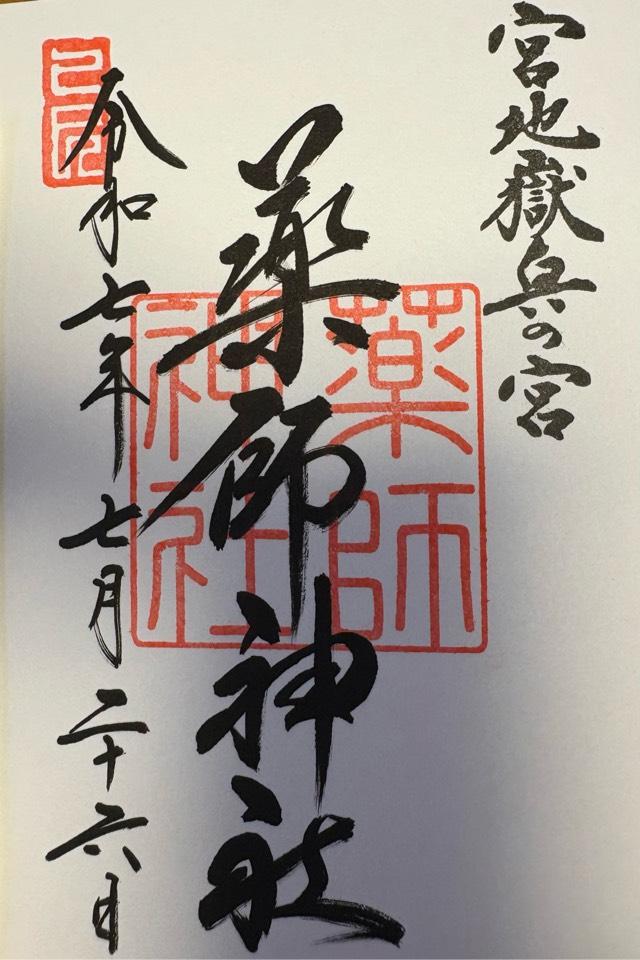 宮地嶽奥の宮
薬師神社
薬師
神社
令和七年七月二十六日